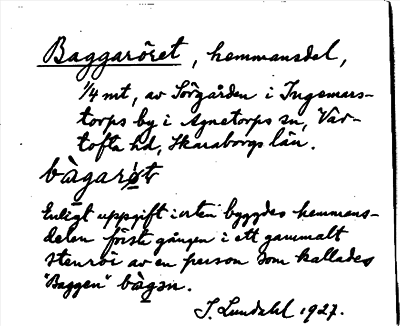 Baggaröret, hemmansdel,
1/4 mt, av Sörgården i Ingemars-
torps by i Agnetorps sn, Var-
tofta hd, Skaraborgs län.
bàgarǿt
Enligt uppgift i orten byggdes hemmans-
delen först gången i ett gammalt
stenrör av en person som kallades
"Baggen" bàgən.
J. Lundahl 1927.